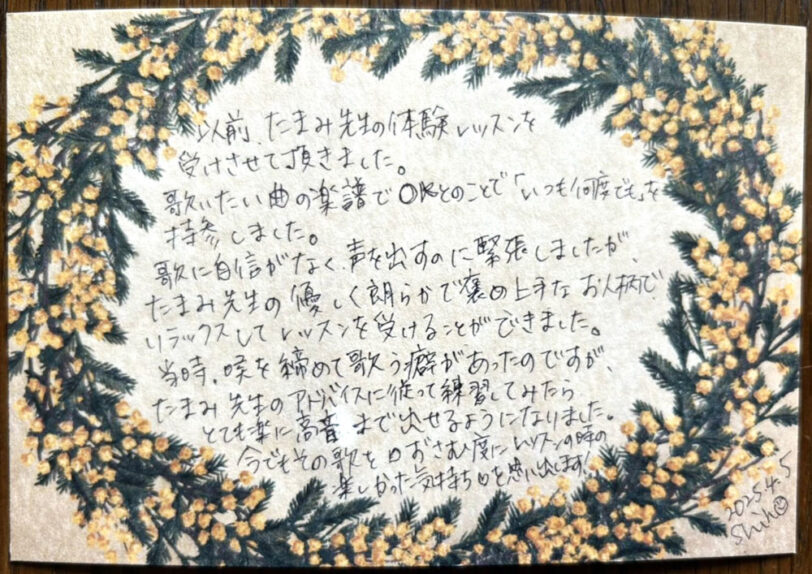 以前、たまみ先生の体験レッスンを
受けさせて頂きました。
歌いたい曲の楽譜でOKとのことで「いつも何度でも」を
持参しました。
歌に自信がなく、声を出すのに緊張しましたが、
たまみ先生の優しく朗らかで褒め上手なお人柄で
リラックスしてレッスンを受けることができました。
当時、喉を締めて歌う癖があったのですが、
たまみ先生のアドバイスに従って練習してみたら
とても楽に高音まで出せるようになりました。
今でもその歌を口ずさむ度にレッスンの時の
楽しかった気持ちを思い出します!
2025.4.5
Shiho